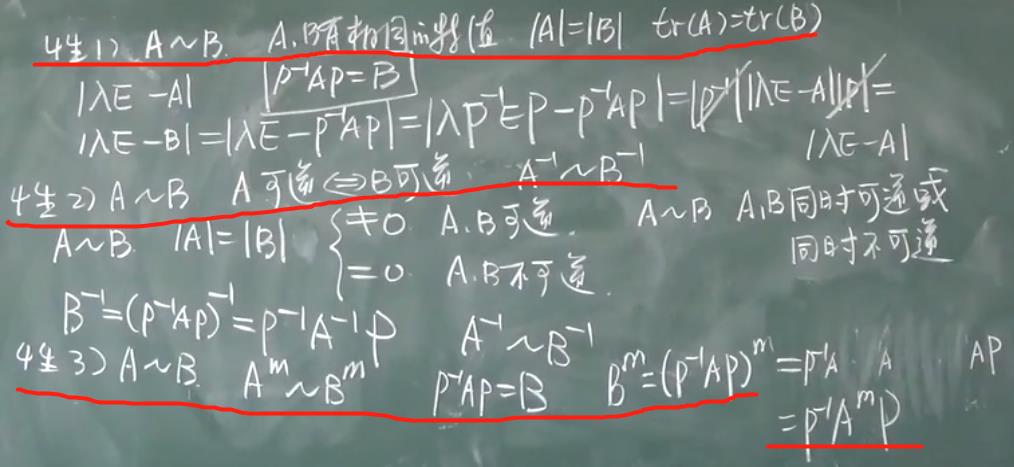 性1) A~B. A.B有相同的特值 |A|=|B| tr(A)=tr(B)
|λE-A| P⁻¹AP=B
|λE-B|=|λE-P⁻¹AP|=|λP⁻¹EP-P⁻¹AP|=|P⁻¹||λE-A||P|=
|λE-A|
性2) A~B A可逆⇔B可逆. A⁻¹~B⁻¹
A~B. |A|=|B| { ≠0 A.B可逆.
=0. A.B不可逆.
A~B A,B同时可逆或
同时不可逆
B⁻¹=(P⁻¹AP)⁻¹=P⁻¹A⁻¹P A⁻¹~B⁻¹
性3) A~B. Aᵐ~Bᵐ P⁻¹AP=B Bᵐ=(P⁻¹AP)ᵐ=P⁻¹A A AP
=P⁻¹AᵐP